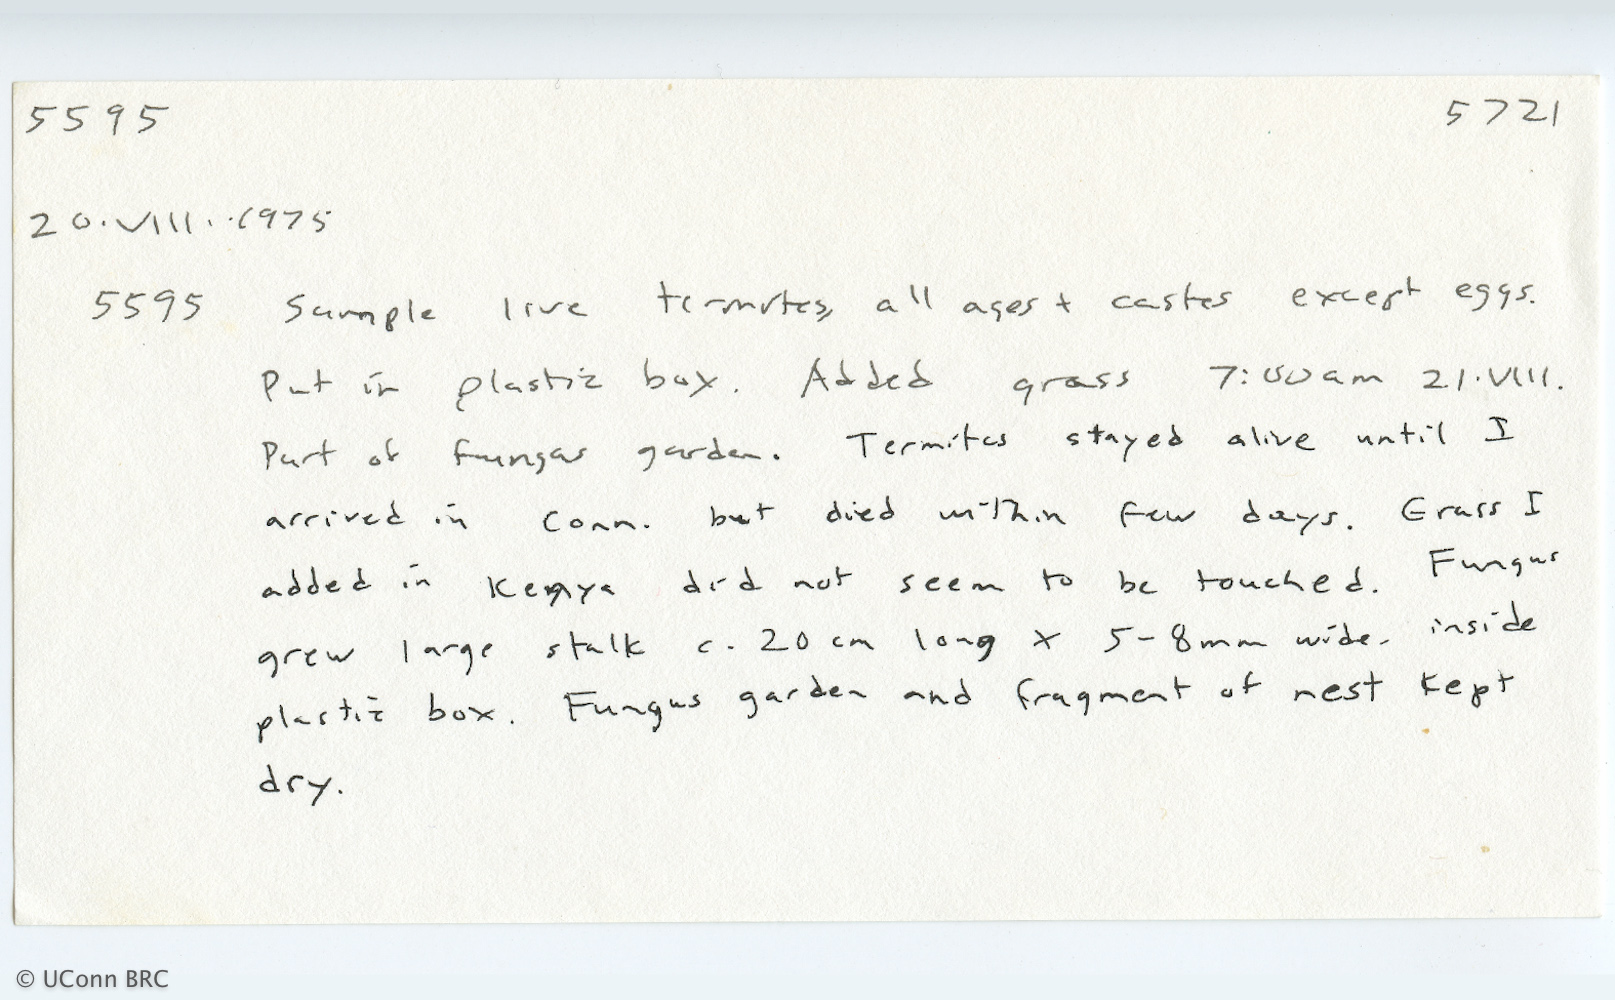 5595 5721
20.VIII.1975
5595 Sample live termites, all ages + castes except eggs.
Put in plastic box. Added grass 7:00am 21.VIII.
Part of fungus garden. Termites stayed alive until I
arrived in Conn. but died within few days. Grass I
added in Kenya did not seem to be touched. Fungus
grew large stalk c. 20 cm long x 5-8mm wide. inside
plastic box. Fungus garden and fragment of nest kept
dry.
© UConn BRC